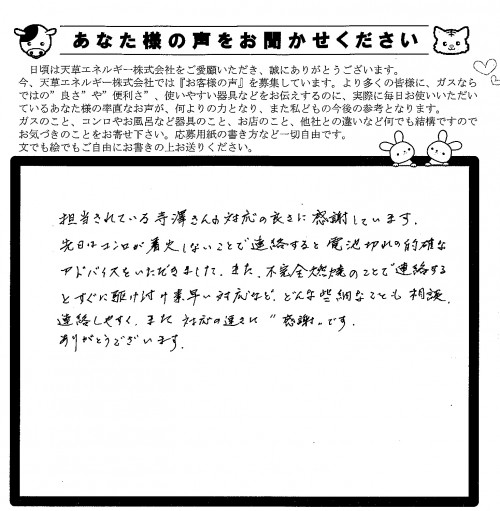 あなた様の声をお聞かせください
日頃は天草エネルギー株式会社をご愛顧いただき、誠にありがとうございます。
今、天草エネルギー株式会社では『お客様の声』を募集しています。より多くの皆様に、ガスなら
ではの”良さ”や”便利さ”、使いやすい器具などをお伝えするのに、実際に毎日お使いいただい
ているあなた様の率直なお声が、何よりの力となり、また私どもの今後の参考となります。
ガスのこと、コンロやお風呂など器具のこと、お店のこと、他社との違いなど何でも結構ですので
お気づきのことをお寄せ下さい。応募用紙の書き方など一切自由です。
文でも絵でもご自由にお書きの上お送りください。
担当されている寺澤さんの対応の良さに感謝しています。
先日はコンロが着火しないことで連絡すると電池切れの的確な
アドバイスをいただきました。また、不完全燃焼のことで連絡する
とすぐに駆け付け素早い対応など、どんな些細なことも相談、
連絡しやすく、また対応の速さに“感謝”です。
ありがとうございます。